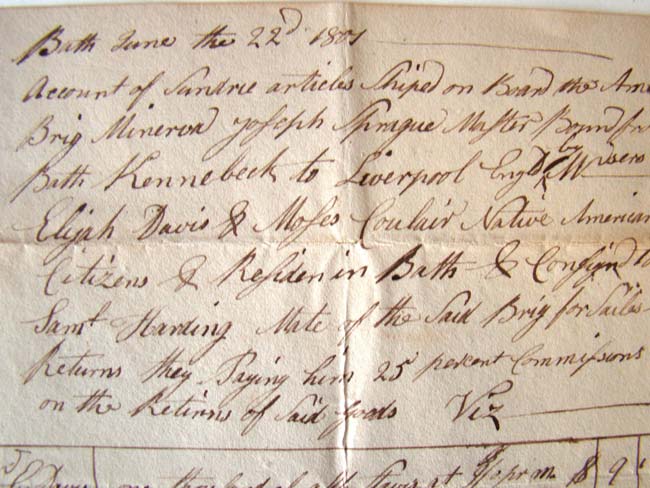 Bath June the 22d 1801
Account of Sundrie articles Shiped on Board the Ame
Brig Minerva Joseph Sprague Master Bound from
Bath Kennebeck to Liverpool Engd by
Elijah Davis & Moses Coulair Native American
Citizens & Residen in Bath & Consignd to
Samt Harding Mate of the Said Brig for Sailes
Returns they Paying him 25 percent Commissions
on the Retirns of Said Goods Viz
one thousand of at $ 9